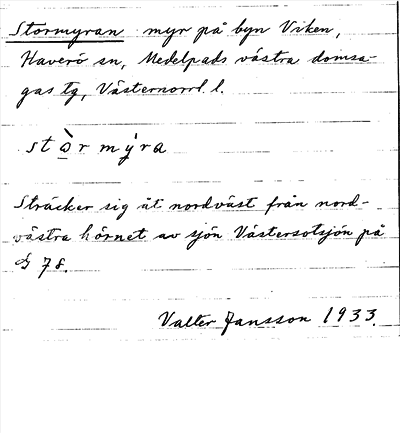 Stormyran myr på byn Viken,
Haverö sn, Medelpads västra domsa-
gas tg, Västernorrl. l.
stò̱r mý̀ra
Sträcker sig åt nordväst från nord-
västra hörnet av sjön Västersotsjön på
G 78.
Valter Jansson 1933.